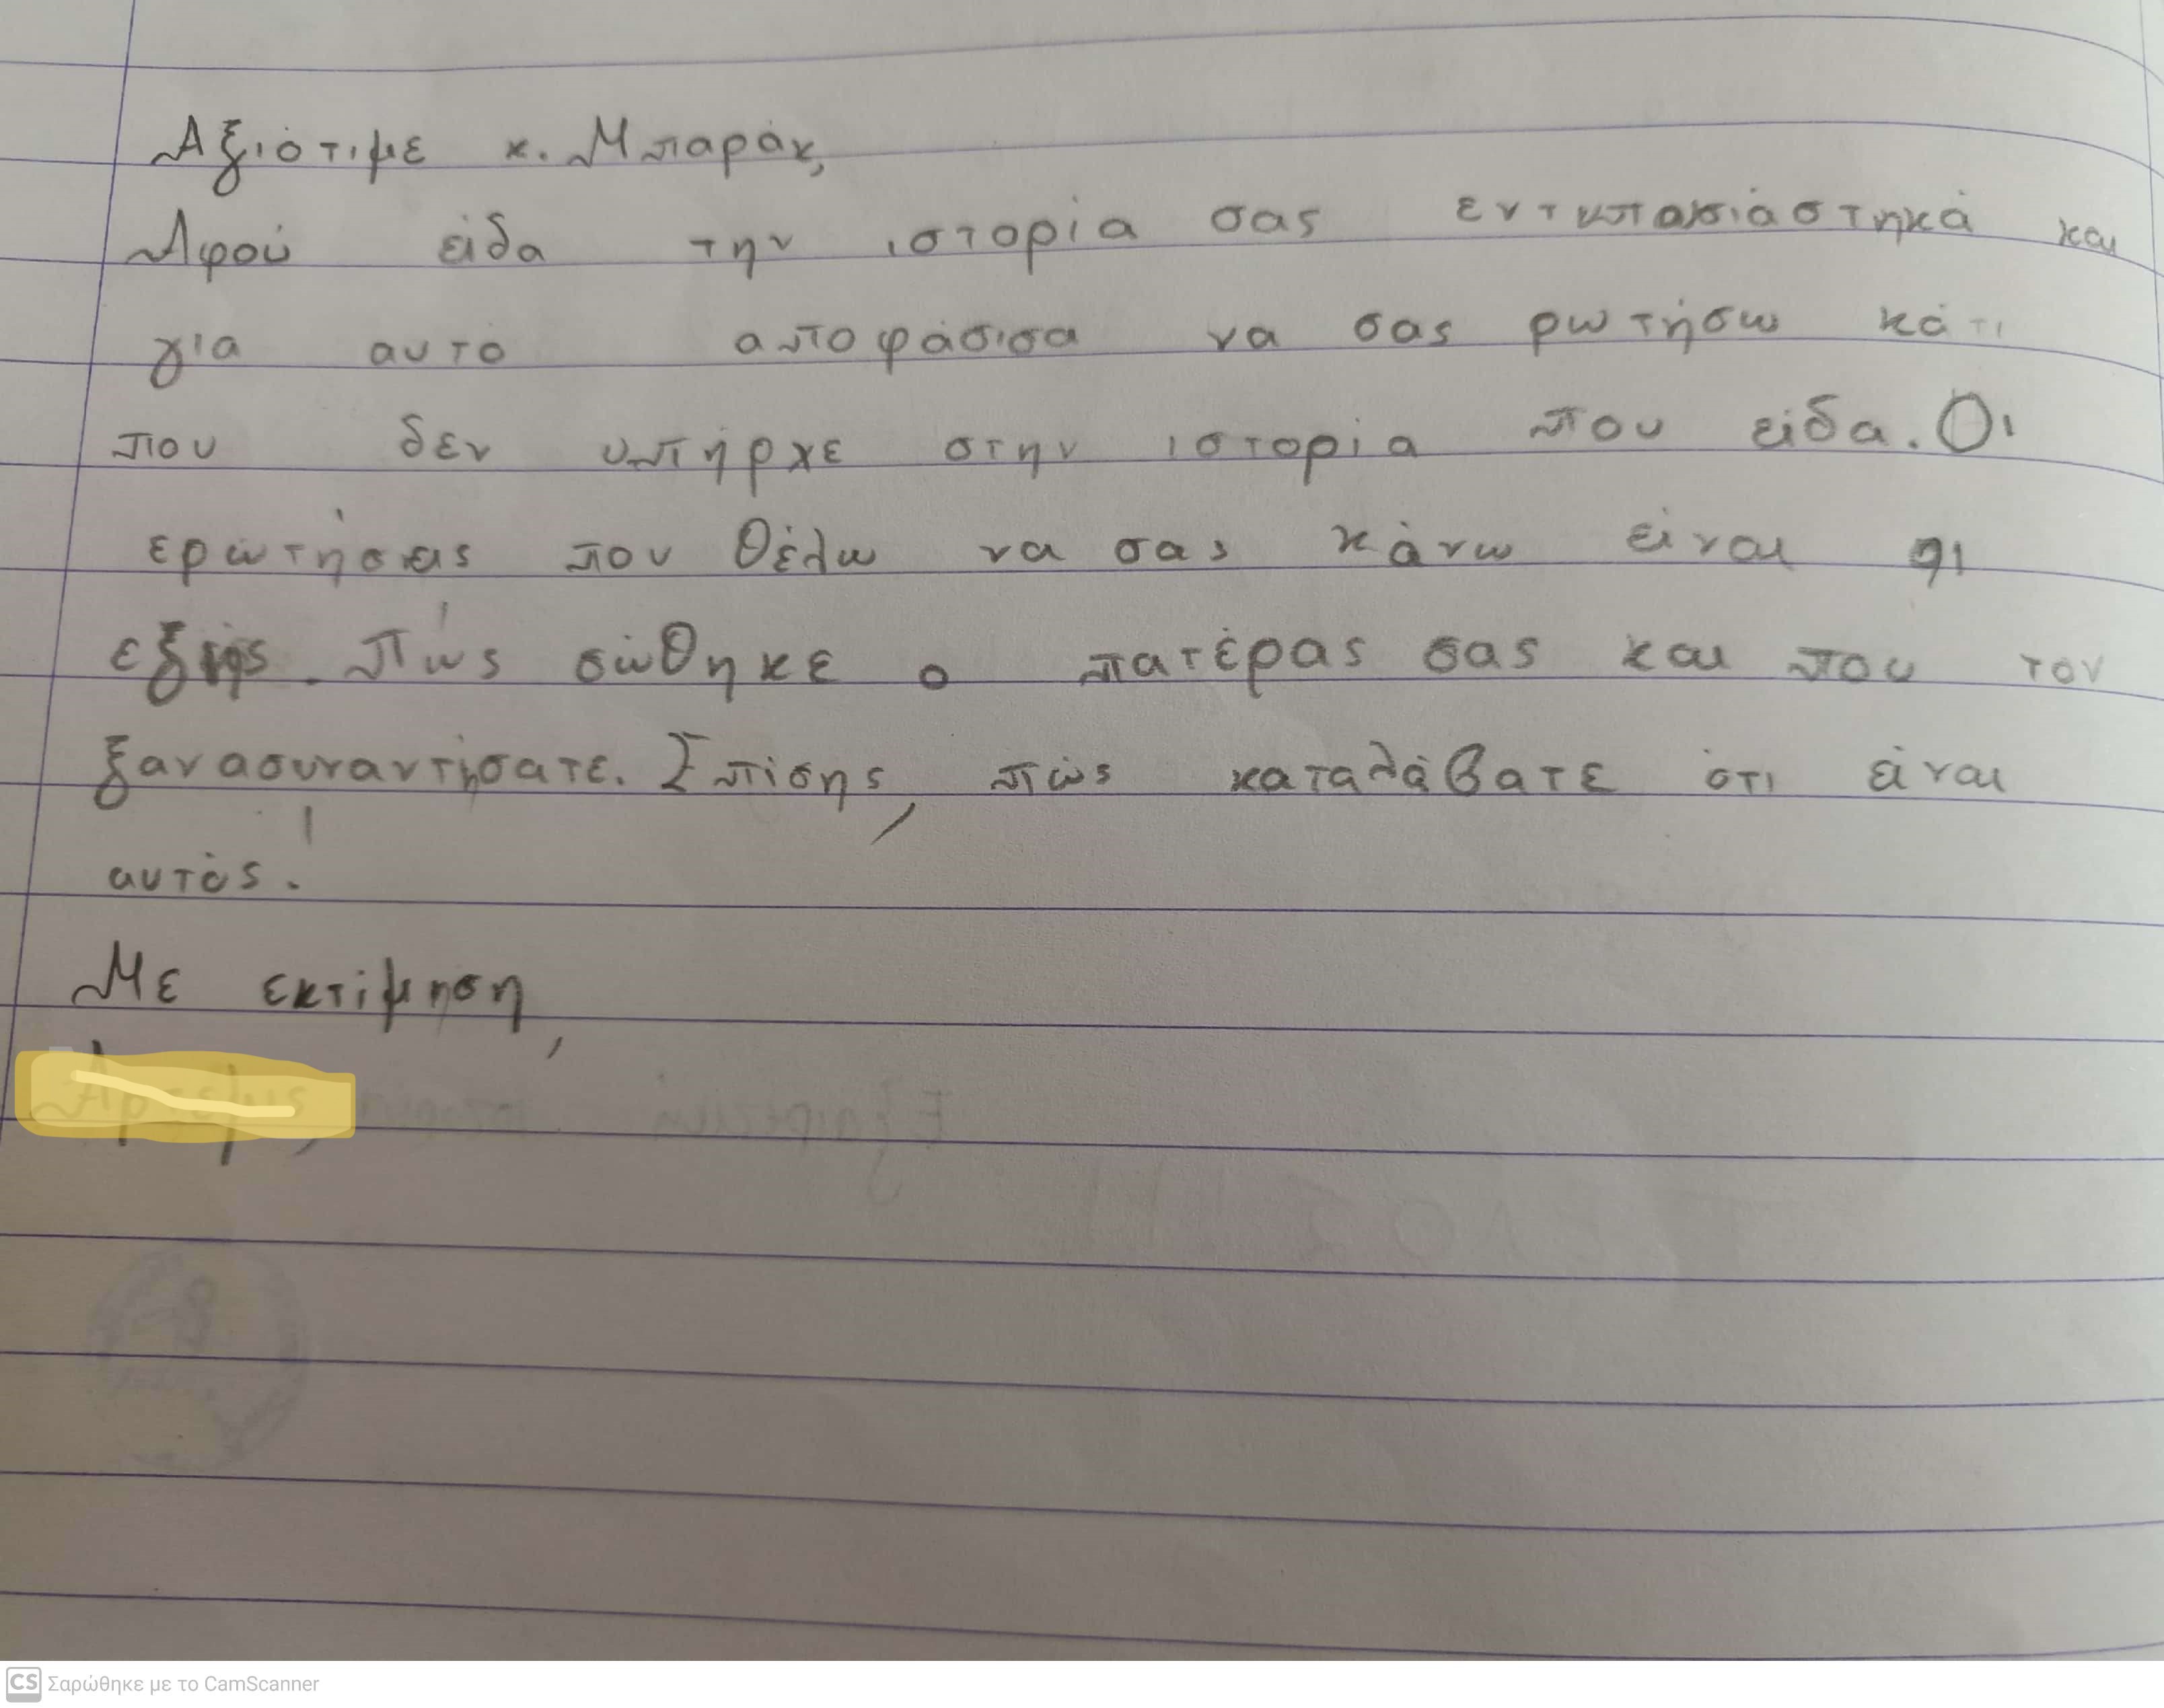 Αξιότιμε κ. Μπαράκ,
Αφού είδα την ιστορία σας εντυπωσιάστηκά και
για αυτό αποφάσισα να σας ρωτήσω κάτι
που δεν υπήρχε στην ιστορία που είδα. Οι
ερώτήσεις που θέλω να σας κάνω είναι οι
εξής. Πώς σώθηκε ο πατέρας σας και που τον
ξανασυναντήσατε. Επίσης, πώς καταλάβατε ότι είναι
αυτός!
Με εκτίμηση,
CS Σαρώθηκε με το CamScanner